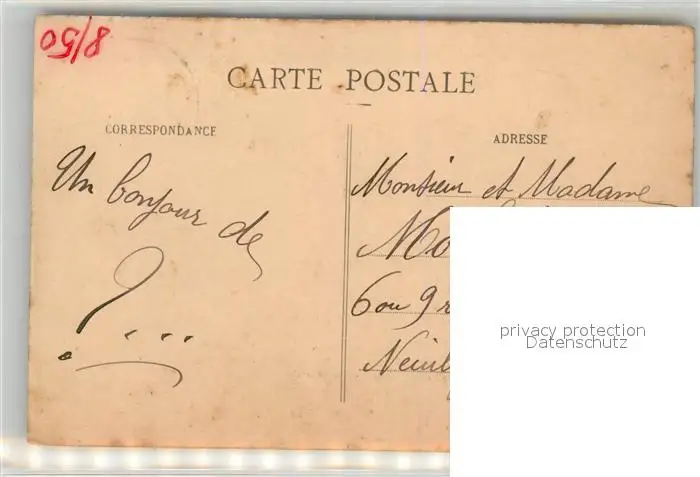 8/50
CARTE POSTALE
CORRESPONDANCE
ADRESSE
Un bonjour de
? ...
Monsieur et Madame
Mo
6 ou 9 r
Neuil
privacy protection
Datenschutz